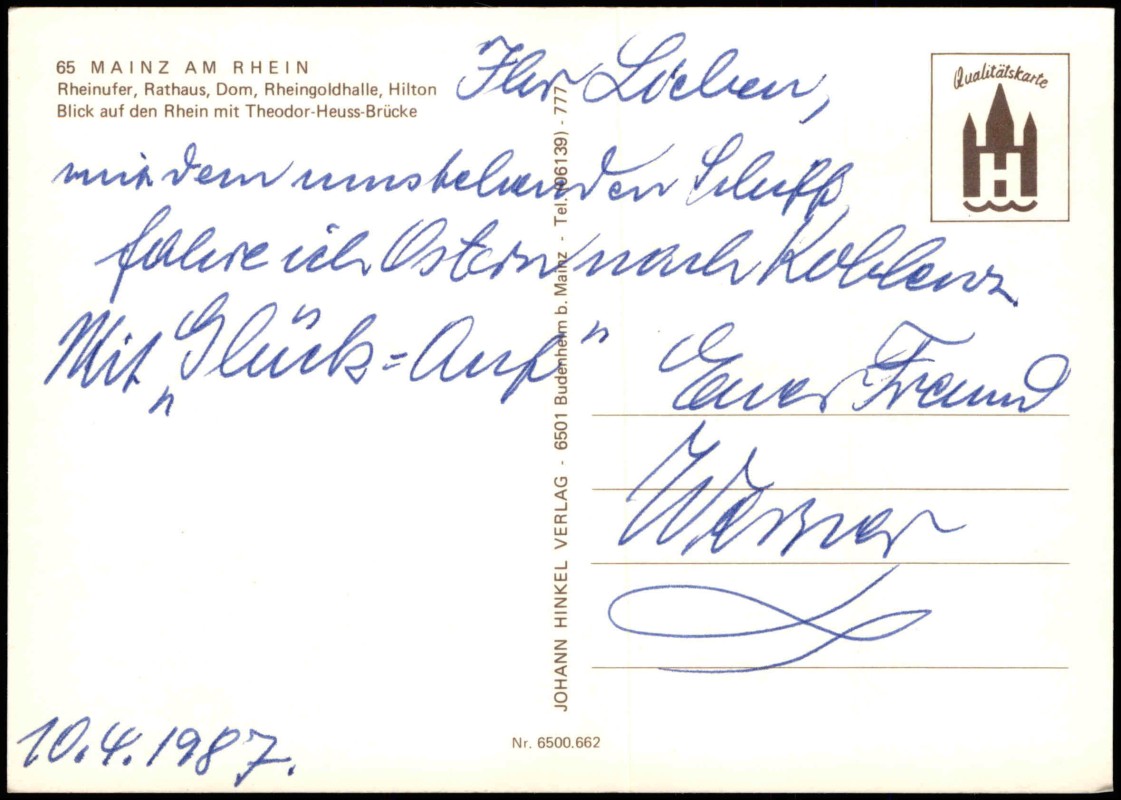 65 MAINZ AM RHEIN
Rheinufer, Rathaus, Dom, Rheingoldhalle, Hilton
Blick auf den Rhein mit Theodor-Heuss-Brücke
Qualitätskarte
H
Ihr Lieben,
mit dem umstehenden Schiff
fahre ich Ostern nach Koblenz.
Mit „Glück=Auf"
Euer Freund
Werner
10.4.1987.
JOHANN HINKEL VERLAG - 6501 Budenheim b. Mainz - Tel. (06139) - 777
Nr. 6500.662